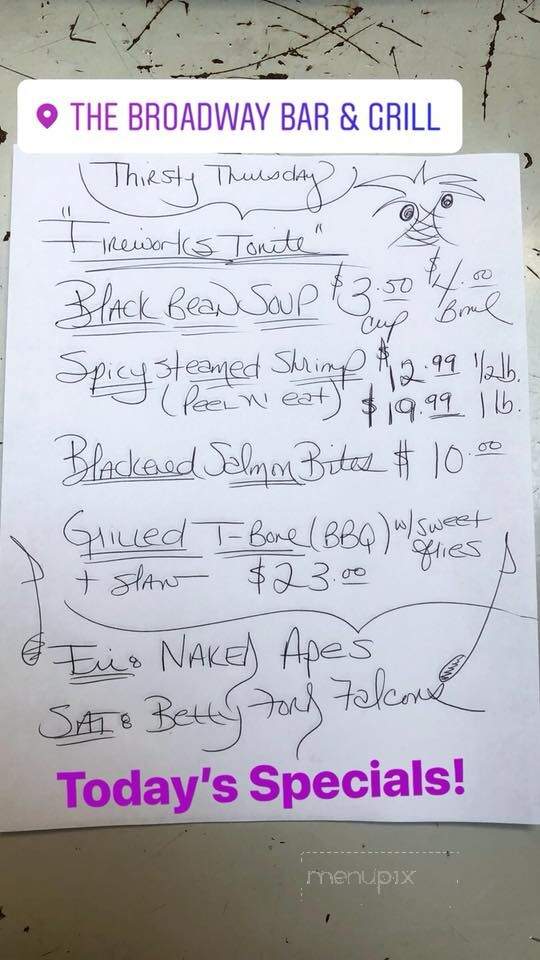 THE BROADWAY BAR & GRILL
Thirsty Thursday
"Fireworks Tonite"
Black Bean Soup $3.50 $4.00
cup Bowl
Spicy Steamed Shrimp $12.99 1/2 lb.
(Peel N' eat) $19.99 1 lb.
Blackened Salmon Bites $10.00
Grilled T-Bone (BBQ) w/ sweet
fries
+ slaw $23.00
Fri: Naked Apes
SAT: Betty Ford Falcons
Today's Specials!
menupix